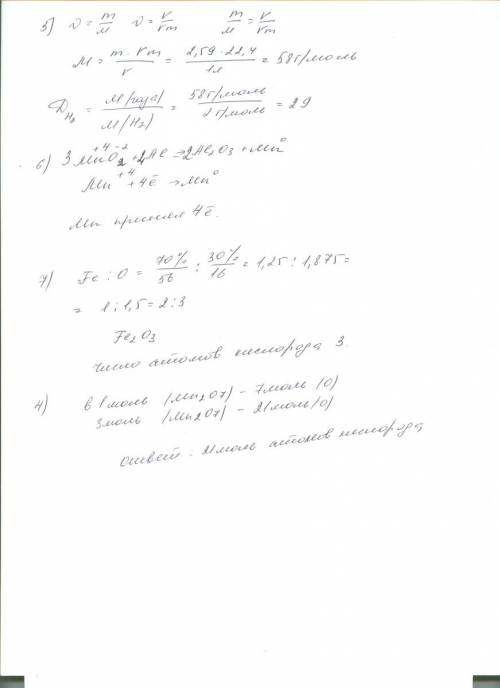 5) ν = m/M   ν = V/Vm   m/M = V/Vm
M = m · Vm / V = 2,59 · 22,4 / 1л = 58 г/моль
D H₂ = M(газа) / M(H₂) = 58 г/моль / 2 г/моль = 29
6) 3 Mn⁺⁴O₂⁻² + 4Al = 2Al₂O₃ + Mn⁰
Mn⁺⁴ + 4ē → Mn⁰
Mn принял 4ē.
7) Fe : O = 70%/56 : 30%/16 = 1,25 : 1,875 =
= 1 : 1,5 = 2 : 3
Fe₂O₃
Число атомов кислорода 3.
4) в 1 моль (Mn₂O7) - 7 моль (O)
3 моль (Mn₂O7) - 21 моль (O)
ответ: 21 моль атомов кислорода